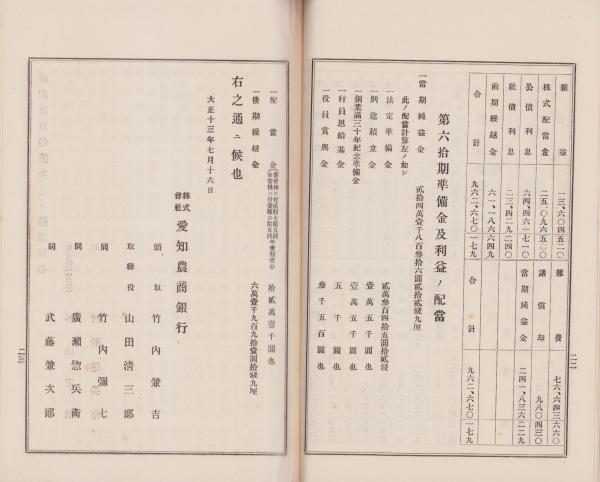 雜益 一三、六〇四五二〇
株式配當金 二五、〇九六五〇〇
公債利息 六四、四六一七一〇
社債利息 二三、四二九二四〇
前期繰越金 六一、一八六六四九
合計 九六二、六七〇一七九
雜費 七六、六四三六六〇
諸償却 九八〇四三〇
當期純益金 二四一、八三六二二九
合計 九六二、六七〇一七九
第六拾期準備金及利益ノ配當
一當期純益金 貳拾四萬壹千八百參拾六圓貳拾貳錢九厘
此ノ配當計算左ノ如シ
一法定準備金 貳萬參百四拾五圓拾貳錢
一別途積立金 壹萬五千圓也
一創業滿三十年紀念準備金 壹萬五千圓也
一行員恩給基金 五千圓也
一役員賞與金 參千五百圓也
二二
一配當金 拾貳萬壹千圓也
一後期繰越金 六萬壹千九百九拾壹圓拾錢九厘
右之通ニ候也
大正十三年七月十六日
株式會社 愛知農商銀行
頭取 竹內兼吉
取締役 山田清三郎
同 竹內彌七
同 廣瀨惣兵衛
同 武藤兼次郎
二三